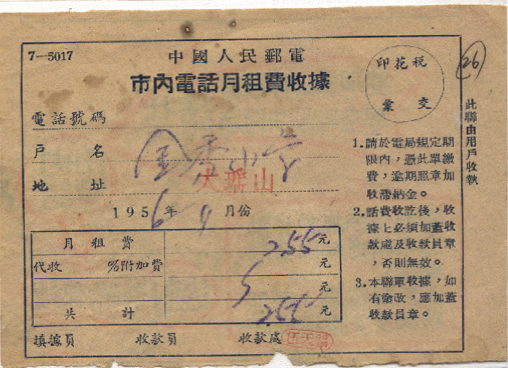 7—5017
中國人民郵電
市內電話月租費收據
印花稅
彙交
(26)
此聯由用戶收執
電話號碼
戶名 金秀小学
大瑶山
地址
1956年 月份
月租費 255元
代收 %附加費 5元
元
共計
填據員 收款員 收款處
1.請於電局規定期
限內,憑此單繳
費,逾期照章加
收滯納金。
2.話費收訖後,收
據上必須加蓋收
款處及收款員章
,否則無效。
3.本聯單收據,如
有塗改,應加蓋
收款員章。